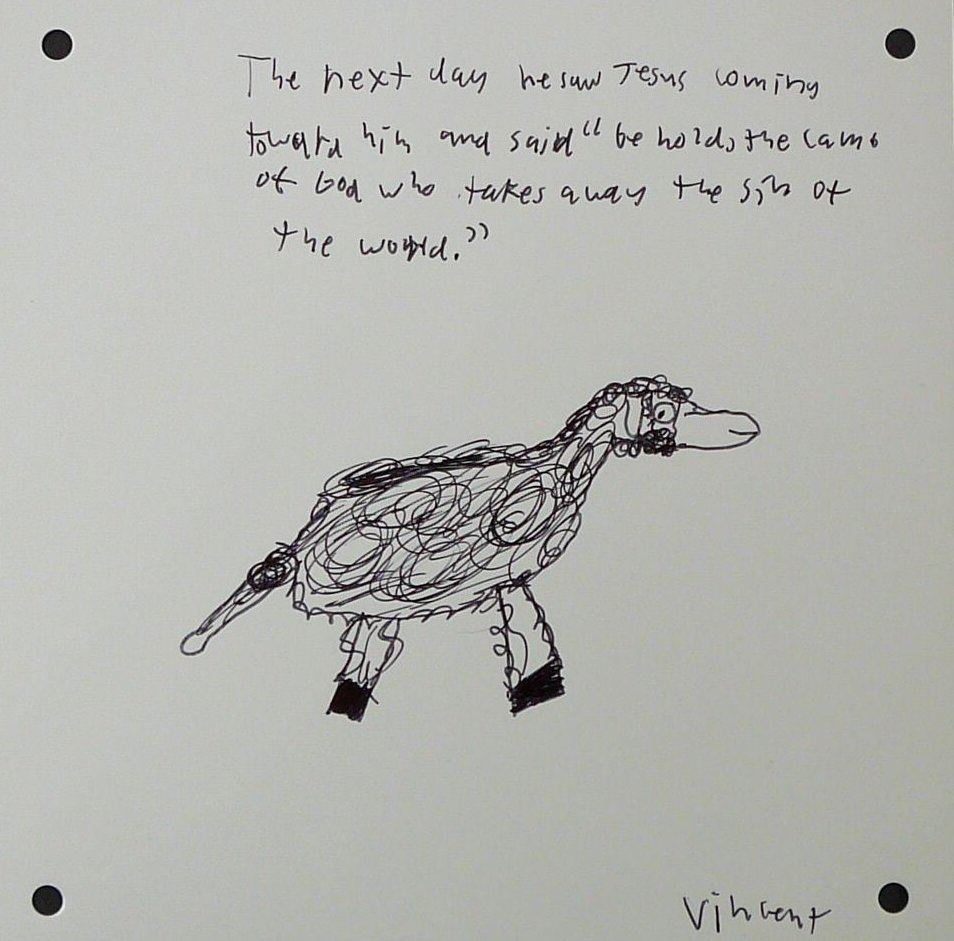 The next day he saw Jesus coming
toward him and said "behold, the lamb
of God who takes away the sin of
the world."
Vincent